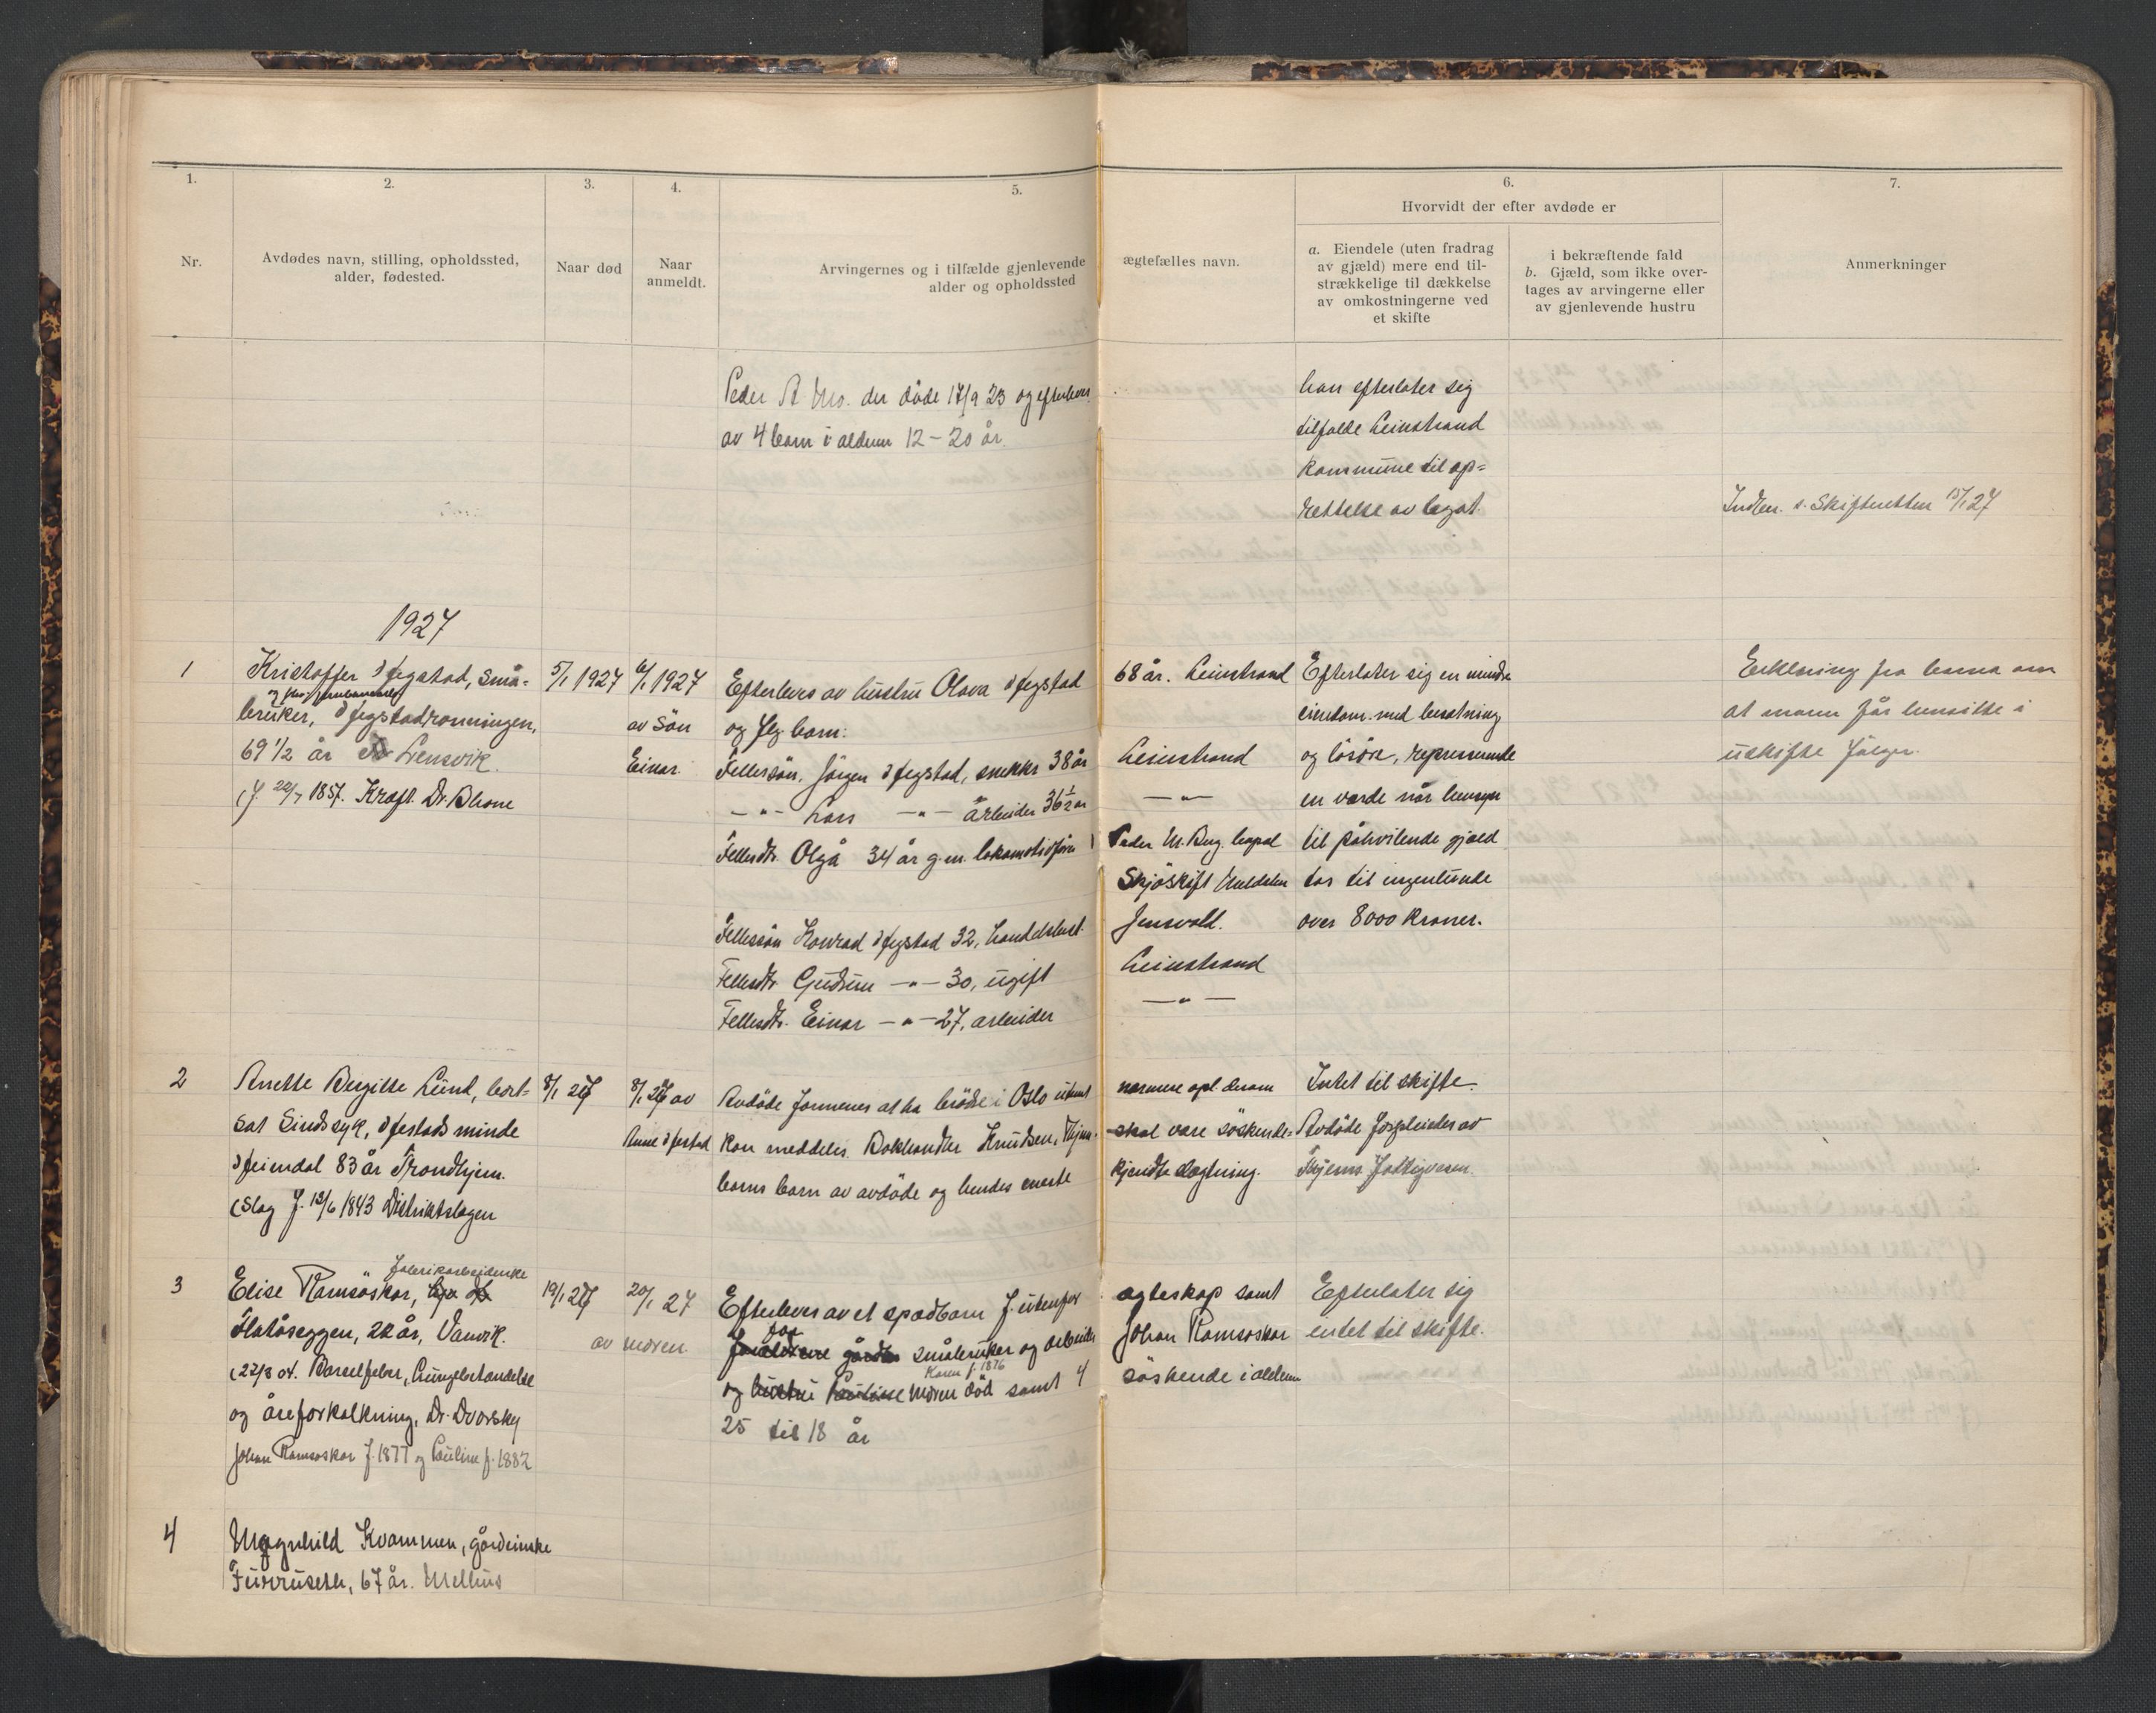 1.
2.
3.
4.
5.
6.
7.
Nr.
Avdødes navn, stilling, opholdssted,
alder, fødested.
Naar død
Naar
anmeldt.
Arvingernes og i tilfælde gjenlevende ægtefælles navn.
alder og opholdssted
Hvorvidt der efter avdøde er
a. Eiendele (uten fradrag
av gjæld) mere end til-
strækkelige til dækkelse
av omkostningerne ved
et skifte
i bekræftende fald
b. Gjæld, som ikke over-
tages av arvingerne eller
av gjenlevende hustru
Anmerkninger
Peder A Mo. der døde 17/9 23 og efterleves
av 4 barn i alderen 12 - 20 år.
han efterlater sig
tilfalde Leinstrand
kommune til op=
rettelse av legat.
Indber. t. Skifteretten 15/1 27
1927
1
Kristoffer Øfegstad, små=
bruker, Øfegstadrønningen,
69 1/2 år Lensvik.
(f. 22/7 1857. Kræft. Dr. Blume
5/1 1927
6/1 1927
av Søn
Einar.
Efterleves av hustru Olava Øfegstad
og flg. barn:
Fellessøn, Jørgen Øfegstad, snekker 38 år
-"- Lars -"- Arbeider 36 1/2 år
Fellesdtr. Olga 34 år g.m. lokomotivfører
Fellessøn Konrad Øfegstad 32, handelsbest.
Fellesdtr. Gudrun -"- 30, ugift
Fellesdtr. Einar -"- 27, arbeider
68 år. Leinstrand
Leinstrand
-"-
Peder M. Aug.
Leinstrand
-"-
Efterlater sig en mindre
eiendom med besætning
og løsøre, representerende
en værde når hensyn
til påhvilende gjæld
tas til ingenlunde
over 8000 kroner.
Erklæring fra barna om
at moren får hensitte i
uskifte følger.
2
Anette Bergitte Lund, bort=
sat Sindssyk, Øfestads minde
83 år Trondhjem.
(Slag f. 13/6 1843 Distriktslægen
8/1 27
8/1 27 av
Anne Øfestad
Avdøde formenes at ha brødre i Oslo
kan meddeles. Bokhandler Knudsen, Thjem.
barns barn av avdøde og hendes eneste
nærmere opl. derom
skal være søskende=
kjendte slægtning.
Intet til skifte.
Avdøde forpleiedes av
Thjems Fattigvesen.
3
Fabrikarbeiderske
Elise Ramsøskar,
Flatåseggen, 22 år, Vanvik.
(27/8 04. Barselfeber, Lungebetændelse
og åreforkalkning, Dr. Dvorsky
Johan Ramsøskar f. 1877 og Pauline f. 1882
19/1 27
20/1 27
av moren
Efterleves av et spædbarn f. utenfor
far
forældrene småbruker og arbeider
Karen f. 1876
og hustru Pauline moren død samt 4
25 til 18 år
ægteskap samt
Johan Ramsøskar
søskende i alderen
Efterlater sig
intet til skifte.
4
Magnhild Kvammen, gårdenke
Furruseth, 67 år. Melhus